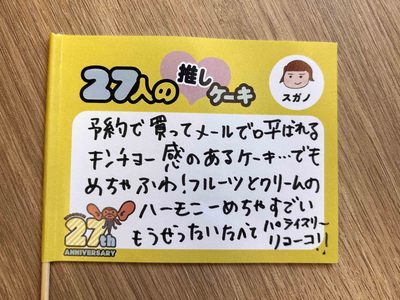 27人の推しケーキ
スガノ
予約で買ってメールで呼ばれる
キンチョー感のあるケーキ…でも
めちゃふわ!フルーツとクリームの
ハーモニーめちゃすごい
もうぜったいたべて パライズリー
リコーコリ!!
27th
ANNIVERSARY